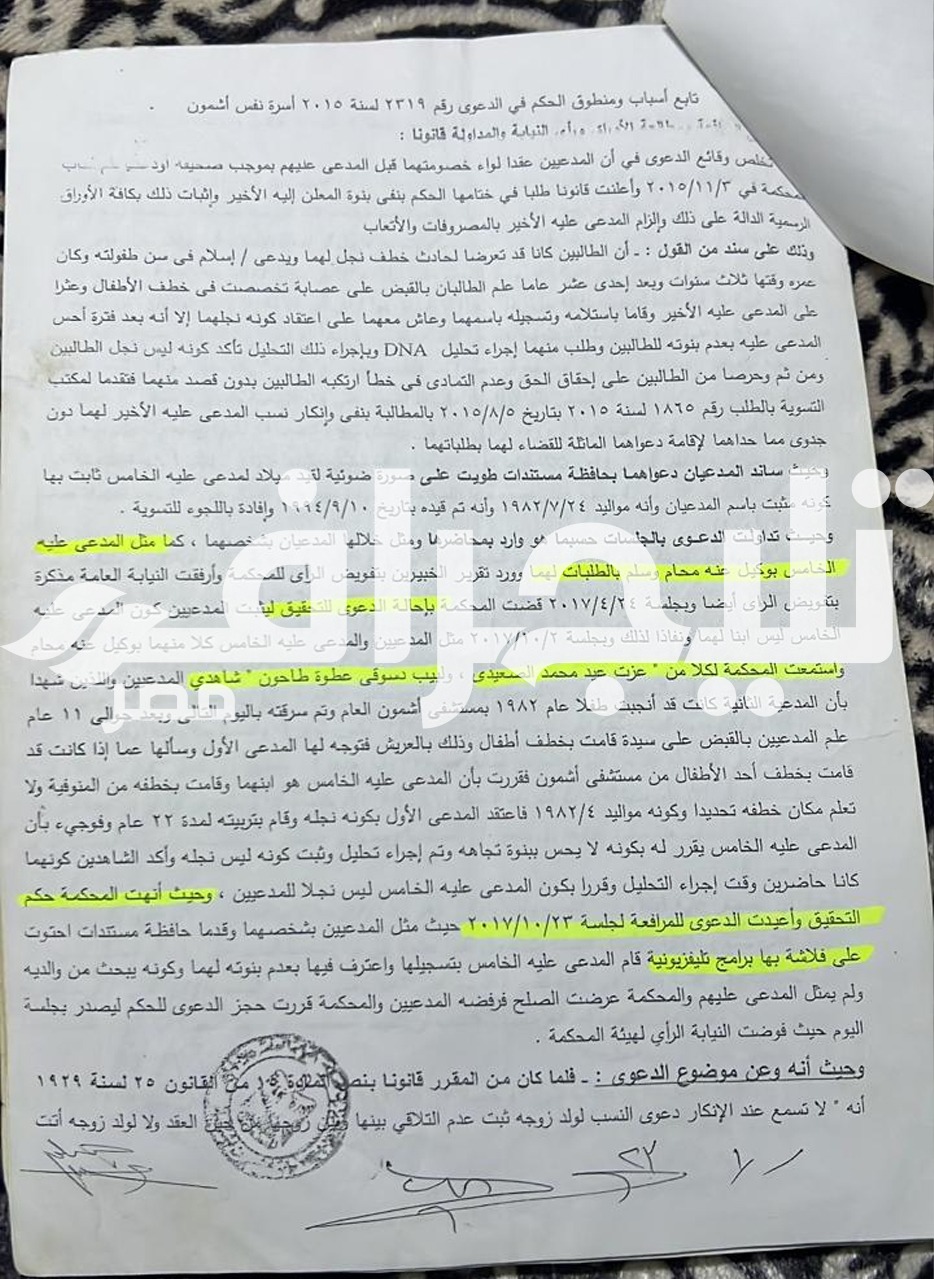 تابع أسباب ومنطوق الحكم في الدعوى رقم ٢٣١٩ لسنة ٢٠١٥ أسرة نفس أشمون
النيابة والمداولة قانونا :
تخلص وقائع الدعوى في أن المدعيين عقدا لواء خصومتهما قبل المدعى عليهم بموجب صحيفة
المحكمة في ٢٠١٥/١١/٣ وأعلنت قانونا طلبا في ختامها الحكم بنفى بنوة المعلن إليه الأخير وإثبات ذلك بكافة الأوراق
الرسمية الدالة على ذلك وإلزام المدعى عليه الأخير بالمصروفات والأتعاب
وذلك على سند من القول : ـ أن الطالبين كانا قد تعرضا لحادث خطف نجل لهما ويدعى / إسلام فى سن طفولته وكان
عمره وقتها ثلاث سنوات وبعد إحدى عشر عاما علم الطالبان بالقبض على عصابة تخصصت فى خطف الأطفال وعثرا
على المدعى عليه الأخير وقاما باستلامه وتسجيله باسمهما وعاش معهما على اعتقاد كونه نجلهما إلا أنه بعد فترة أحس
المدعى عليه بعدم بنوته للطالبين وطلب منهما إجراء تحليل DNA وبإجراء ذلك التحليل تأكد كونه ليس نجل الطالبين
ومن ثم وحرصا من الطالبين على إحقاق الحق وعدم التمادى فى خطأ ارتكبه الطالبين بدون قصد منهما فتقدما لمكتب
التسوية بالطلب رقم ١٨٦٥ لسنة ٢٠١٥ بتاريخ ٢٠١٥/٨/٥ بالمطالبة بنفى وإنكار نسب المدعى عليه الأخير لهما دون
جدوى مما حداهما لإقامة دعواهما الماثلة للقضاء لهما بطلباتهما .
وحيث ساند المدعيان دعواهما بحافظة مستندات طويت على صورة ضوئية لقيد ميلاد لمدعى عليه الخامس ثابت بها
كونه مثبت باسم المدعيان وأنه مواليد ١٩٨٢/٧/٢٤ وأنه تم قيده بتاريخ ١٩٩٤/٩/١٠ وإفادة باللجوء للتسوية .
وحيث تداولت الدعوى بالجلسات حسبما هو وارد بمحاضرها ومثل خلالها المدعيان بشخصهما ، كما مثل المدعى عليه
الخامس بوكيل عنه محام وسلم بالطلبات لهما وورد تقرير الخبيرين بتفويض الرأى للمحكمة وأرفقت النيابة العامة مذكرة
بتفويض الرأى أيضا وبجلسة ٢٠١٧/٤/٢٤ قضت المحكمة بإحالة الدعوى للتحقيق ليثبت المدعيين كون المدعى عليه
الخامس ليس ابنا لهما ونفاذا لذلك وبجلسة ٢٠١٧/١٠/٢ مثل المدعيين والمدعى عليه الخامس كلا منهما بوكيل عنه محام
واستمعت المحكمة لكلا من " عزت عيد محمد الصعيدى ، ولبيب دسوقى عطوة طاحون " شاهدي المدعيين واللذين شهدا
بأن المدعية الثانية كانت قد أنجبت طفلا عام ١٩٨٢ بمستشفى أشمون العام وتم سرقته باليوم التالى وبعد حوالى ١١ عام
علم المدعيين بالقبض على سيدة قامت بخطف أطفال وذلك بالعريش فتوجه لها المدعى الأول وسألها عما إذا كانت قد
قامت بخطف أحد الأطفال من مستشفى أشمون فقررت بأن المدعى عليه الخامس هو ابنهما وقامت بخطفه من المنوفية ولا
تعلم مكان خطفه تحديدا وكونه مواليد ١٩٨٢/٤ فاعتقد المدعى الأول بكونه نجله وقام بتربيته لمدة ٢٢ عام وفوجيء بأن
المدعى عليه الخامس يقرر له بكونه لا يحس ببنوة تجاهه وتم إجراء تحليل وثبت كونه ليس نجله وأكد الشاهدين كونهما
كانا حاضرين وقت إجراء التحليل وقررا بكون المدعى عليه الخامس ليس نجلا للمدعيين ، وحيث أنهت المحكمة حكم
التحقيق وأعيدت الدعوى للمرافعة لجلسة ٢٠١٧/١٠/٢٣ حيث مثل المدعيين بشخصهما وقدما حافظة مستندات احتوت
على فلاشة بها برامج تليفزيونية قام المدعى عليه الخامس بتسجيلها واعترف فيها بعدم بنوته لهما وكونه يبحث من والديه
ولم يمثل المدعى عليهم والمحكمة عرضت الصلح فرفضه المدعيين والمحكمة قررت حجز الدعوى للحكم ليصدر بجلسة
اليوم حيث فوضت النيابة الرأي لهيئة المحكمة .
وحيث أنه وعن موضوع الدعوى : ـ فلما كان من المقرر قانونا بنص المادة ١٥ من القانون ٢٥ لسنة ١٩٢٩
أنه " لا تسمع عند الإنكار دعوى النسب لولد زوجه ثبت عدم التلاقي بينها وبين زوجها من حين العقد ولا لولد زوجه أتت
تليجراف
مصر